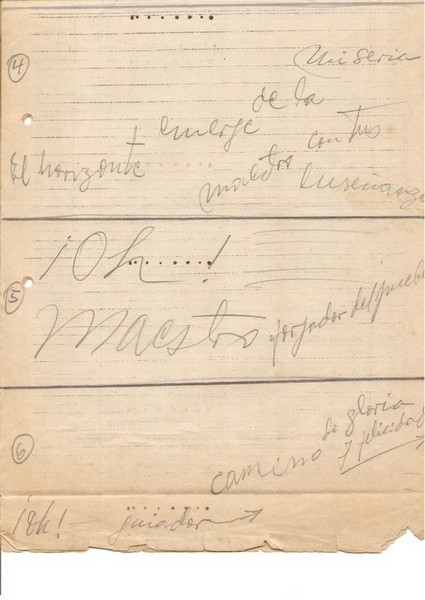 4
El horizonte emerge de la Miseria
maestro con tus
Enseñanza
5
¡Oh......!
Maestro forjador del pueblo
6
¡Oh! guiador → camino de gloria
y felicidad